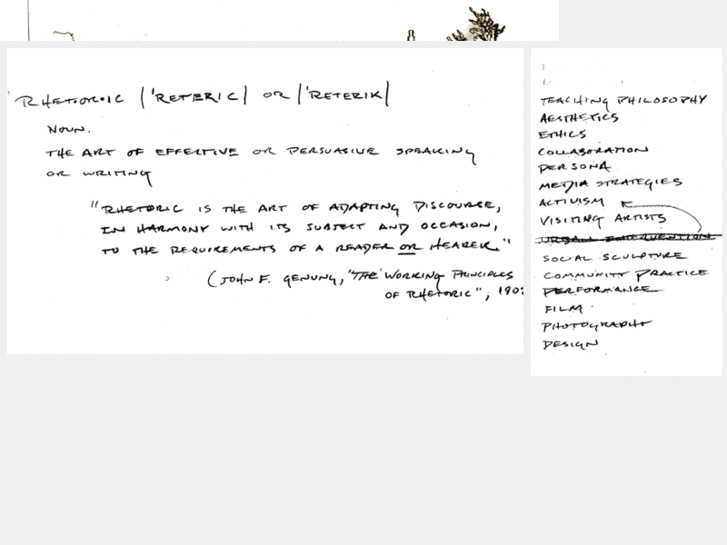 RHETORIC |'RETERIC| OR |'RETERIK|
NOUN.
THE ART OF EFFECTIVE OR PERSUASIVE SPEAKING
OR WRITING
"RHETORIC IS THE ART OF ADAPTING DISCOURSE,
IN HARMONY WITH ITS SUBJECT AND OCCASION,
TO THE REQUIREMENTS OF A READER OR HEARER"
(JOHN F. GENUNG, "THE WORKING PRINCIPLES
OF RHETORIC", 190
TEACHING PHILOSOPHY
AESTHETICS
ETHICS
COLLABORATION
PERSONA
MEDIA STRATEGIES
ACTIVISM
VISITING ARTISTS
URBAN INTERVENTION
SOCIAL SCULPTURE
COMMUNITY PRACTICE
PERFORMANCE
FILM
PHOTOGRAPHY
DESIGN